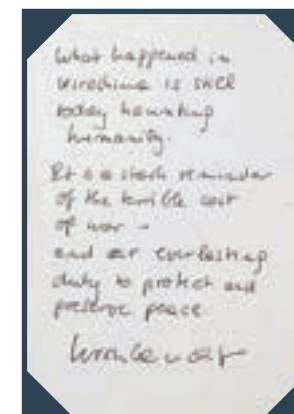 What happened in
Hiroshima is still
today haunting
humanity.
It is a stark reminder
of the terrible cost
of war –
and our everlasting
duty to protect and
preserve peace